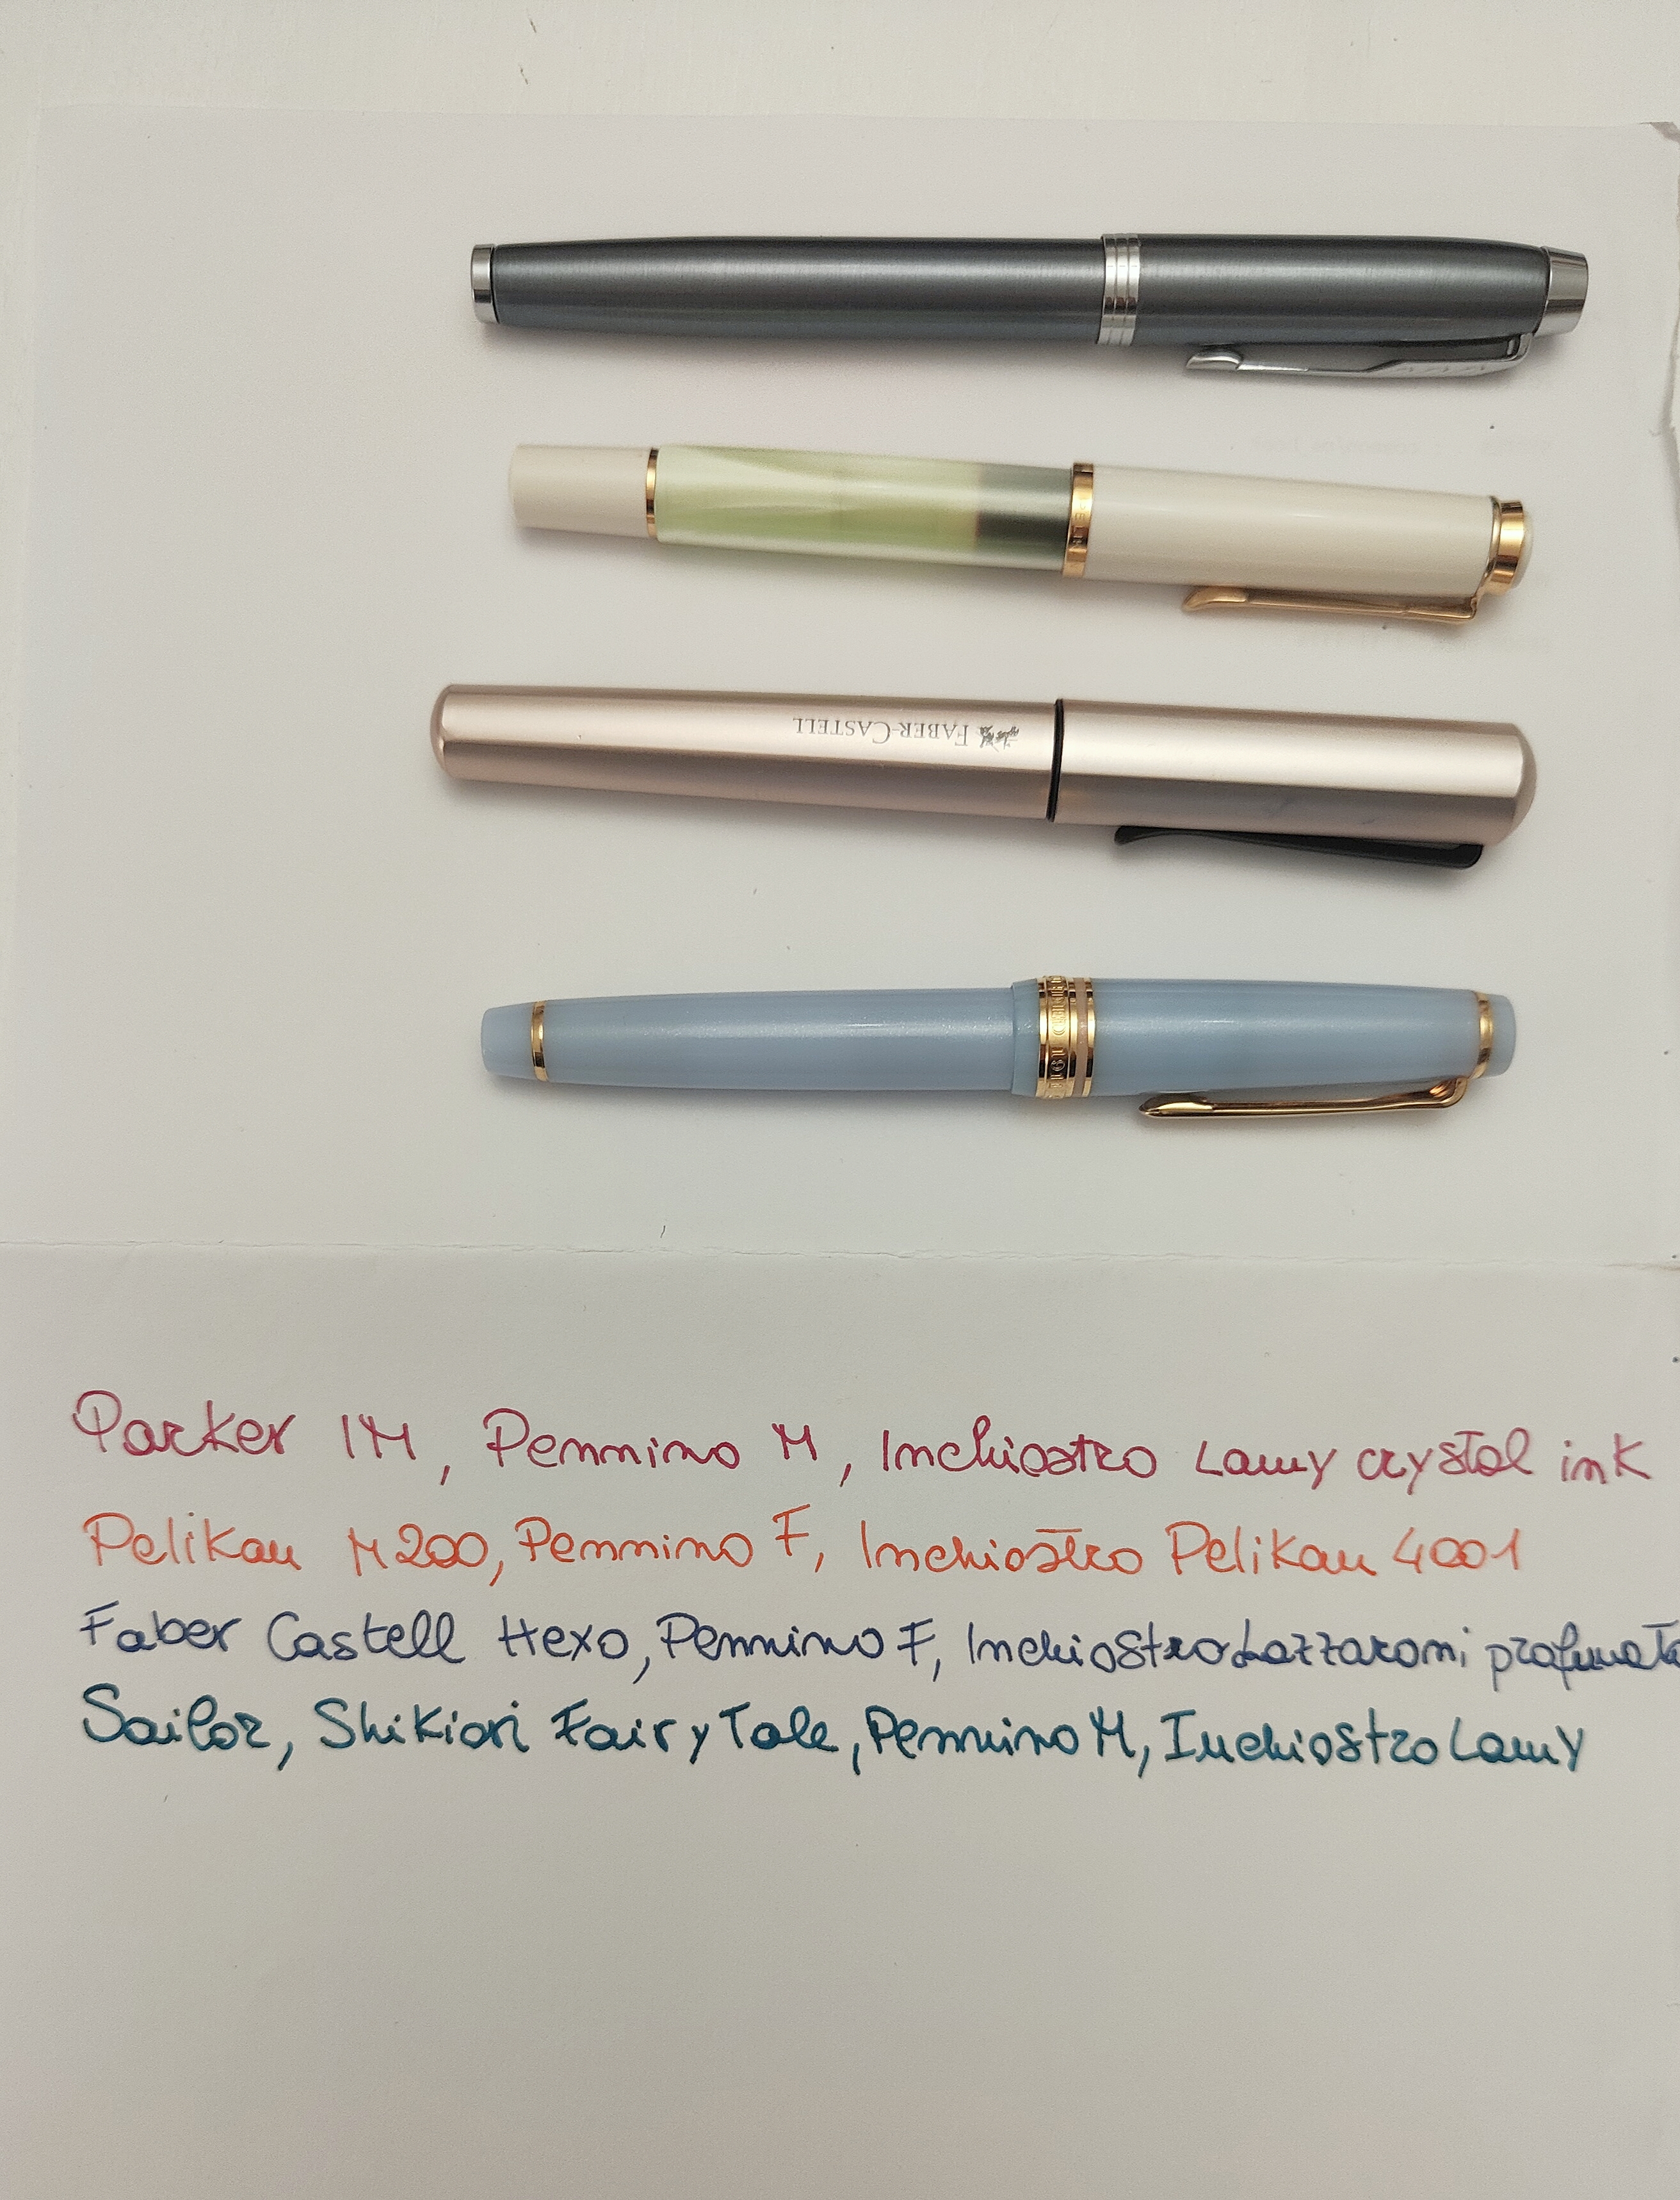 FABER-CASTELL
Parker IM, Pennino M, Inchiostro Lamy crystal ink
Pelikan M200, Pennino F, Inchiostro Pelikan 4001
Faber Castell Hexo, Pennino F, Inchiostro Lazzaroni profumato
Sailor, Shikiori Fairy Tale, Pennino M, Inchiostro Lamy